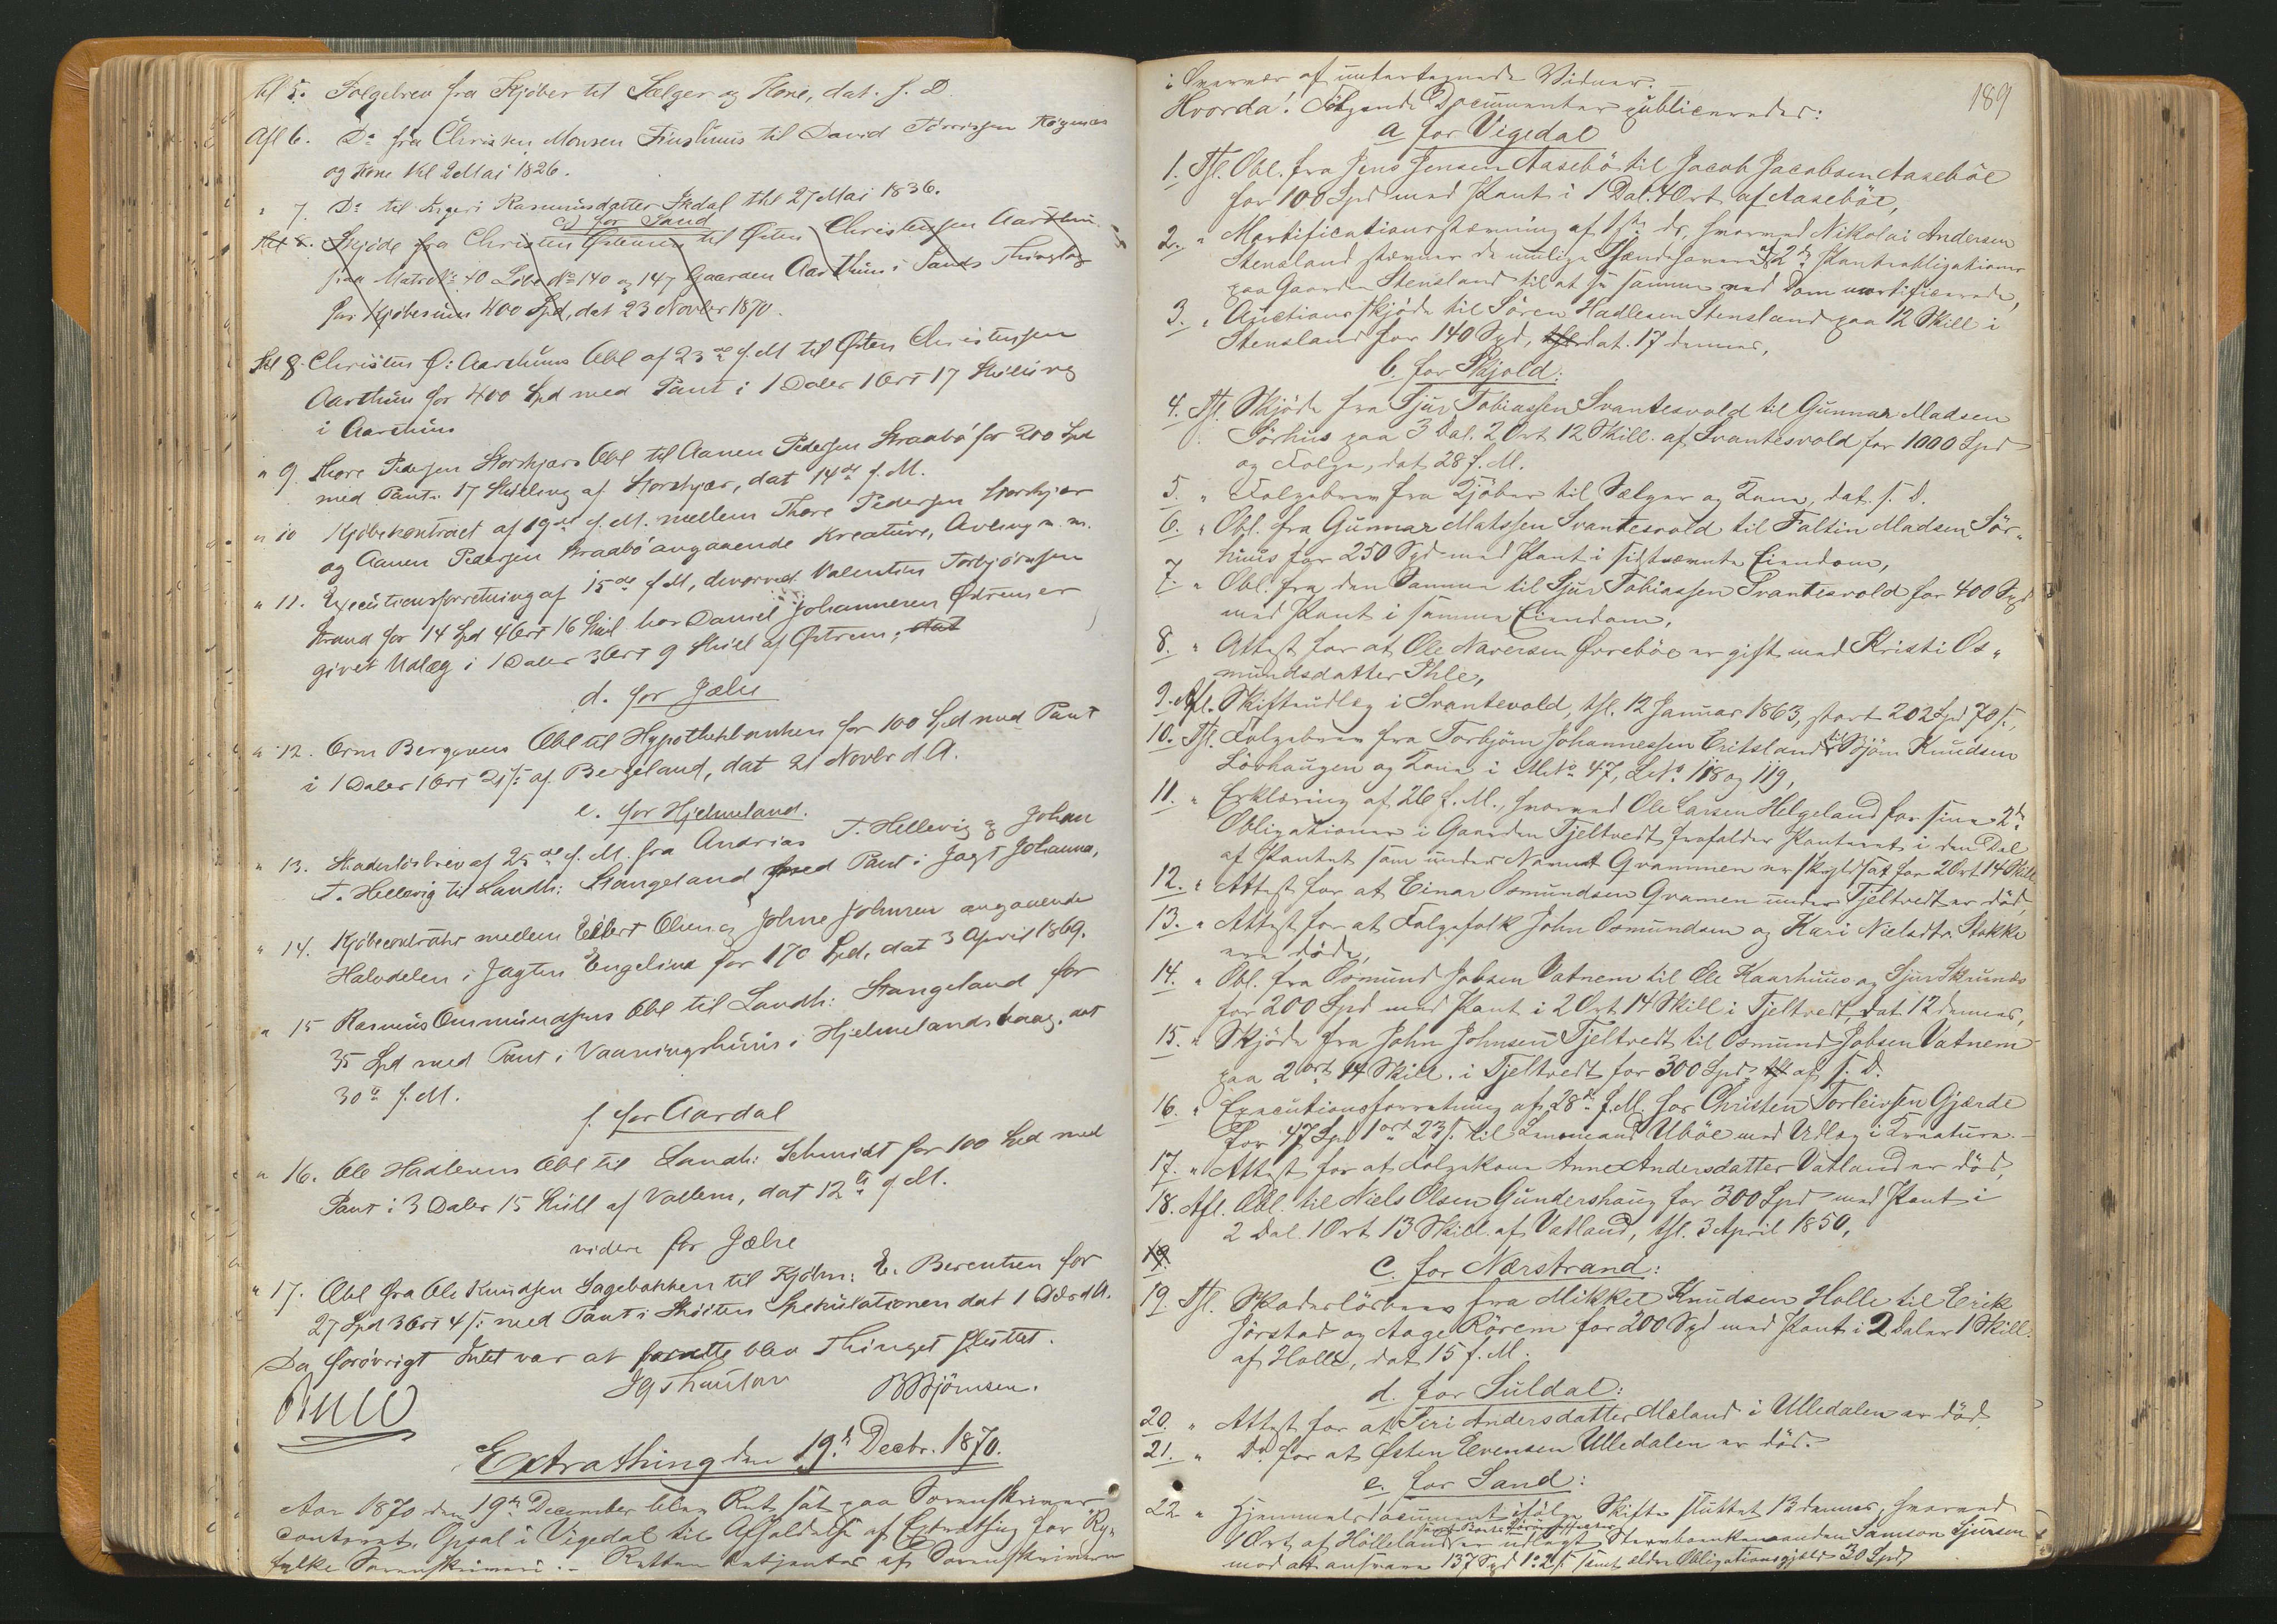 til 5. Folgebrev fra Kjøber til Sælger og Kone, dat. s. D.
Afl 6. Do fra Christen Monsen Finshuus til David Törrissen
og Kone thl 2 Mai 1826.
" 7. Do til Rasmusdatter thl 27 Mai 1836.
c) for Sand
til 8. Skjøde fra Christen Østensen til Østen Christensen Aarthuu
paa Matr No 40 Löbe No 140 og 147 Gaarden Aarthuus i Sands Thinglag
for Kjøbesum 400 Spd, dat 23 Novbr 1870.
til 8. Christen Ø: Aarthuus Obl af 23de f. M til Østen Christensen
Aarthuus for 400 Spd med Pant i 1 Daler 1 Ort 17 Skilling
i Aarthuus
" 9. Thore Pedersen Storkjærs Obl til Aanen Pedersen Straabö for 200 Spd
med Pant i 17 Skilling af Storkjær, dat 14de f. M.
" 10 Kjøbekontract af 19de f. M. mellem Thore Pedersen Storkjær
og Aanen Pedersen Straabö angaaende Kreature, Avling m. m.
" 11. Executionsforretning af 15de f M, hvorved Valentin Torbjörnsen
Strand for 14 Spd 4 Ort 16 Skil hos Daniel Johannesen Østrem er
givet Udlæg i 1 Daler 3 Ort 9 Skill af Østrem, dat
d. for Jælse
" 12. Orm Bergesens Obl til Hypothekbanken for 100 Spd med Pant
i 1 Daler 1 Ort 21 s af Bergeland, dat 21 Novbr d. A.
e. for Hjelmeland.
" 13. Skadesløsbrev af 25de f. M. fra Andrias T. Hellevig og Johan
T. Hellevig til Landh: Stangeland med Pant i Jagt Johanna,
" 14. Kjøbecontract mellem Eilert Olsen og Johne Johnsen angaaende
Halvdelen i Jagten Engeline for 170 Spd, dat 3 April 1869.
" 15 Rasmus Ommundsens Obl til Landh: Stangeland for
35 Spd med Pant i Vaaningshuus i Hjelmelandsvaag, dat
30te f. M.
f. for Aardal
" 16. Ole Hadlesens Obl til Landh: Schmidt for 100 Spd med
Pant i 3 Daler 15 Skill af Vallem, dat 12te f. M.
videre for Jælse
" 17. Obl fra Ole Knudsen Sagebakken til Kjöbm: E. Berentsen for
27 Spd 3 Ort 4 s: med Pant i Skøiten Spekulationen dat 1 d. A.
Da forövrigt Intet var at foretage blev Thinget sluttet.
B Björnsen.
Extrathing den 19de Decbr. 1870.
Aar 1870 den 19de December blev Ret sat paa Sorenskriver
contoret, Opsal i Vigedal til Afholdelse af Extrathing for Ry-
fylke Sorenskriveri. – Retten betjentes af Sorenskriveren
189
i Overvær af undertegnede Vidner. –
Hvorda! Følgende Documenter publiceredes:
a for Vigedal
1. Tfl. Obl. fra Jens Jensen Aasebö til Jacob Jacobsen Aaseböe
for 100 Spd med Pant i 1 Dal. 4 Ort af Aaseböe,
2. " Mortificationsstævning af ds, hvorved Nikolai Andersen
Stensland stævner de mulige Ihændehavere af 2de Pantobligationer
paa Gaarden Stensland til at faa samme ved Dom mortificerede,
3. " Auctionsskjöde til Sören Hadlesen Stensland paa 12 Skill i
Stensland for 140 Spd, dat. 17 dennes,
b. for Skjold:
4. Tfl. Skjöde fra Sjur Tobiassen Svantesvold til Gunnar Madsen
Sörhus paa 3 Dal. 2 Ort 12 Skill. af Svantesvold for 1000 Spd
og Folge, dat 28 f. M.
5. " Folgebrev fra Kjöber til Sælger og Kone, dat. s. D.
6. " Obl. fra Gunnar Matssen Svantesvold til Faltin Madsen Sör-
huus for 250 Spd med Pant i sidstnævnte Eiendom,
7. " Obl. fra den Samme til Sjur Tobiassen Svantesvold for 400 Spd
med Pant i samme Eiendom,
8. " Attest for at Ole Naversen Övreböe er gift med Kristi Os-
mundsdatter Ihle,
9. Afl. Skifteudlæg i Svantevold, thl. 12 Januar 1863, stort 202 Spd 70 s,
10. Tfl. Folgebrev fra Torbjörn Johannessen Eritsland til Björn Knudsen
Lövhaugen og Kone i M No 47, L No 118 og 119,
11. " Erklæring af 26 f. M., hvorved Ole Larsen Helgeland for sine 2de
Obligationer i Gaarden Tjeltvedt frafalder Panteret i den Del
af Pantet som under Navnet Qvammen er skyldsat for 2 Ort 14 Skill
12. " Attest for at Einar Osmundsen Qvamen under Tjeltvedt er död,
13. " Attest for at Folgefolk John Osmundsen og Kari Nielsdtr. Stakke
ere döde,
14. " Obl. fra Osmund Jobsen Vatnem til Ole Kaarhuus og Sjur Skrunes
for 200 Spd med Pant i 2 Ort 14 Skill i Tjeltvedt, dat 12 dennes,
15. " Skjöde fra John Johnsen Tjeltvedt til Osmund Jobsen Vatnem
paa 2 ort 14 Skill. i Tjeltvedt for 300 Spd, af s. D.
16. " Executionsforretning af 28de f. M. hos Christen Torleivsen Gjærde
for 47 Spd 1 ort 23 s. til Lensmand Uböe med Udlæg i Kreature. –
17. " Attest for at Folgekone Anne Andersdatter Vatland er död,
18. Afl. Obl. til Niels Olsen Gundershaug for 300 Spd med Pant i
2 Dal. 1 Ort 13 Skill. af Vatland, thl. 3 April 1850,
19.
c. for Nærstrand:
19. Tfl. Skadeslösbrev fra Mikkel Knudsen Halle til Erik
Jörstad og Aage Rörem for 200 Spd med Pant i 2 Daler 1 Skill.
af Halle, dat 15 f. M.
d. for Suldal:
20. " Attest for at Siri Andersdatter Mæland i Ulledalen er död
21. " Do for at Østen Evensen Ulledalen er död.
e. for Sand:
22 " Hjemmelsdocument ifölge Skifte sluttet 13 dennes, hvorved
1 Ort af Hölleland er udlagt Stervboenkemanden Samson Sjursen
mod at ansvare 137 Spd samt ældre Obligationsgjæld 30 Spd